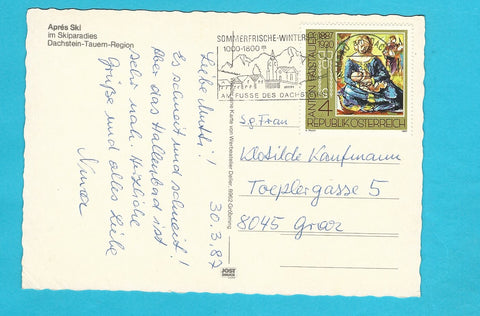 Aprés Ski
im Skiparadies
Dachstein-Tauern-Region
Liebe Mutti!
Es schneit und schneit!
Aber das Hallenbad ist
sehr nah. Herzliche
Grüße und alles Liebe
30.3.87
SOMMERFRISCHE-WINTERS
1000-1800 m
AM FUSSE DES DACHST
ANTON FAISTAUER
1887
1930
4
REPUBLIK ÖSTERREICH
Sg. Frau
Klotilde Kaufmann
Toeplergasse 5
8045 Graz
eine Karte von Werbeatelier Deller, 8962 Gröbming
JOST